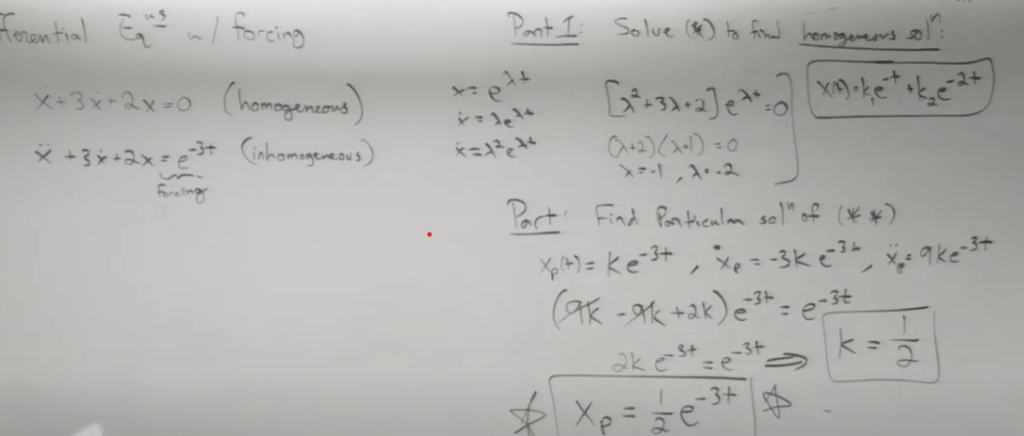 ferential Eqns w/ forcing
ẍ+3ẋ+2x=0 (homogeneous)
ẍ+3ẋ+2x=e^-3t (inhomogeneous)
forcing
Part I: Solve (*) to find homogeneous solⁿ:
x=e^λt
ẋ=λe^λt
ẍ=λ²e^λt
[λ²+3λ+2]e^λt=0
(λ+2)(λ+1)=0
λ=-1, λ=-2
x(t)=k₁e^-t+k₂e^-2t
Part: Find Particular solⁿ of (**)
xₚ(t)=ke^-3t, ẋₚ=-3ke^-3t, ẍₚ=9ke^-3t
(9k-9k+2k)e^-3t=e^-3t
2ke^-3t=e^-3t ⟹ k=1/2
☆ xₚ=1/2e^-3t ☆